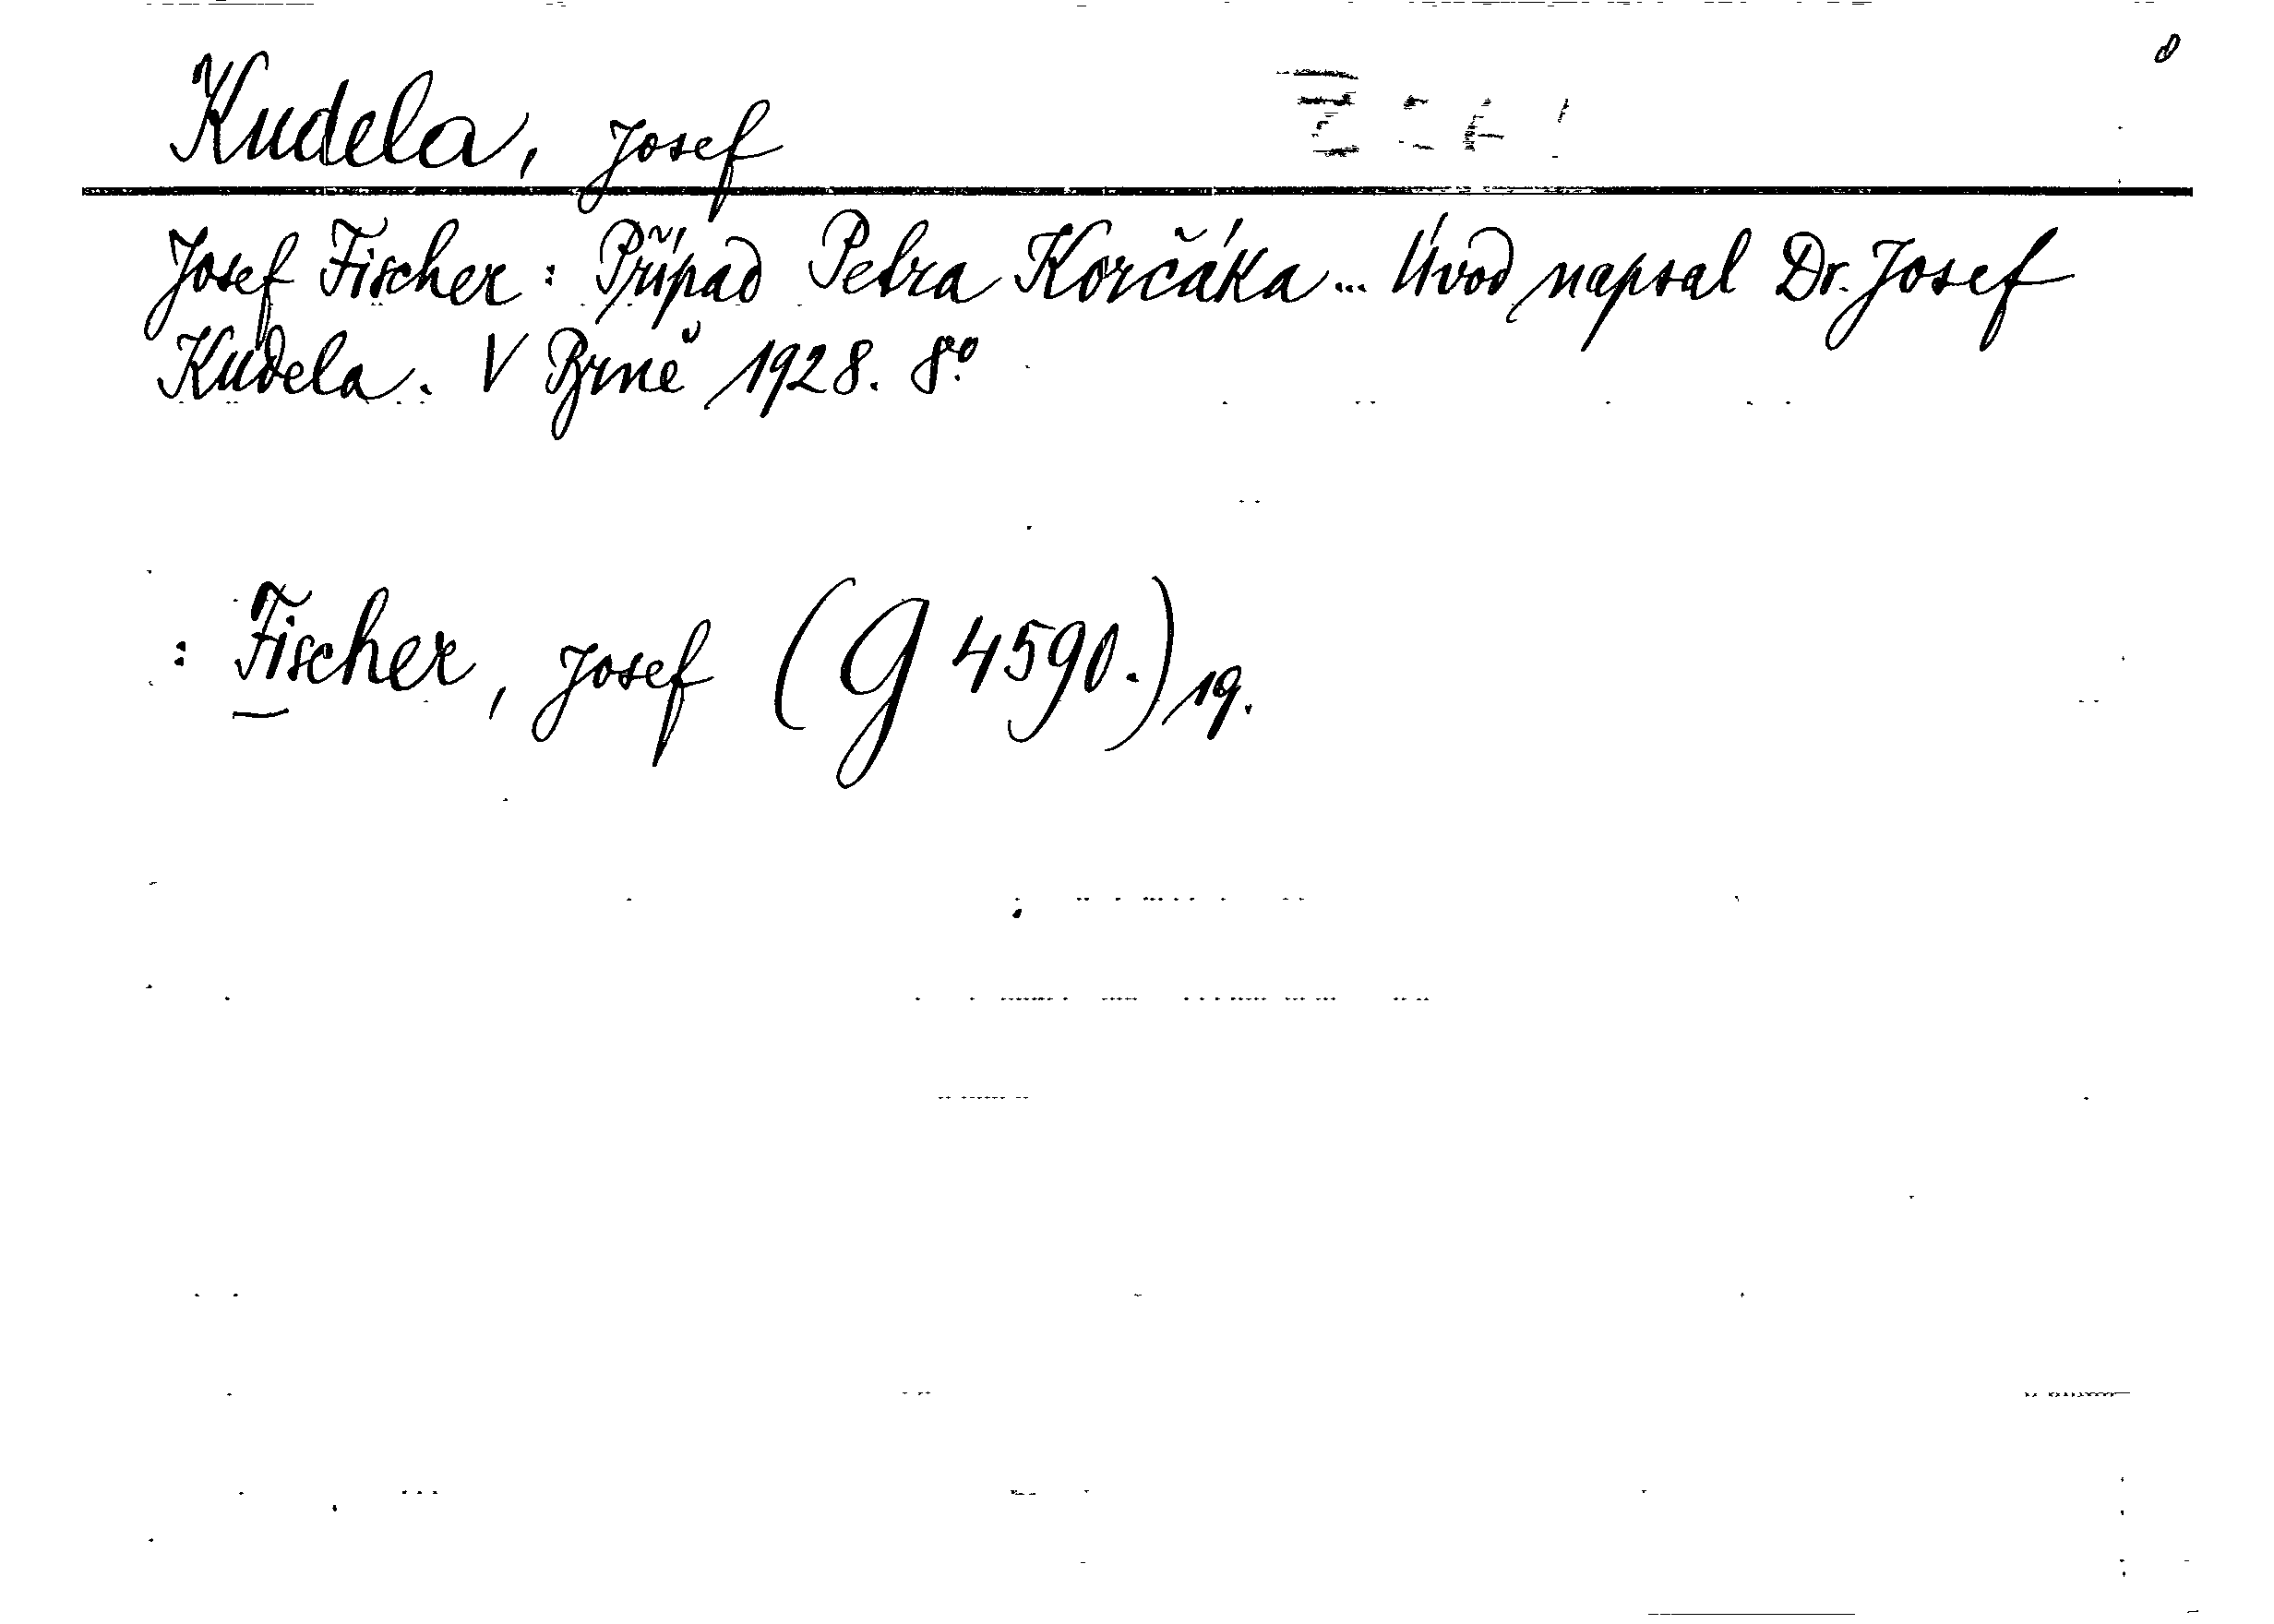 Kudela, Josef
Josef Fischer: Případ Petra Korčáka... Úvod napsal Dr. Josef
Kudela. V Brně 1928. 8º
: Fischer, Josef (G 4590.) 19.